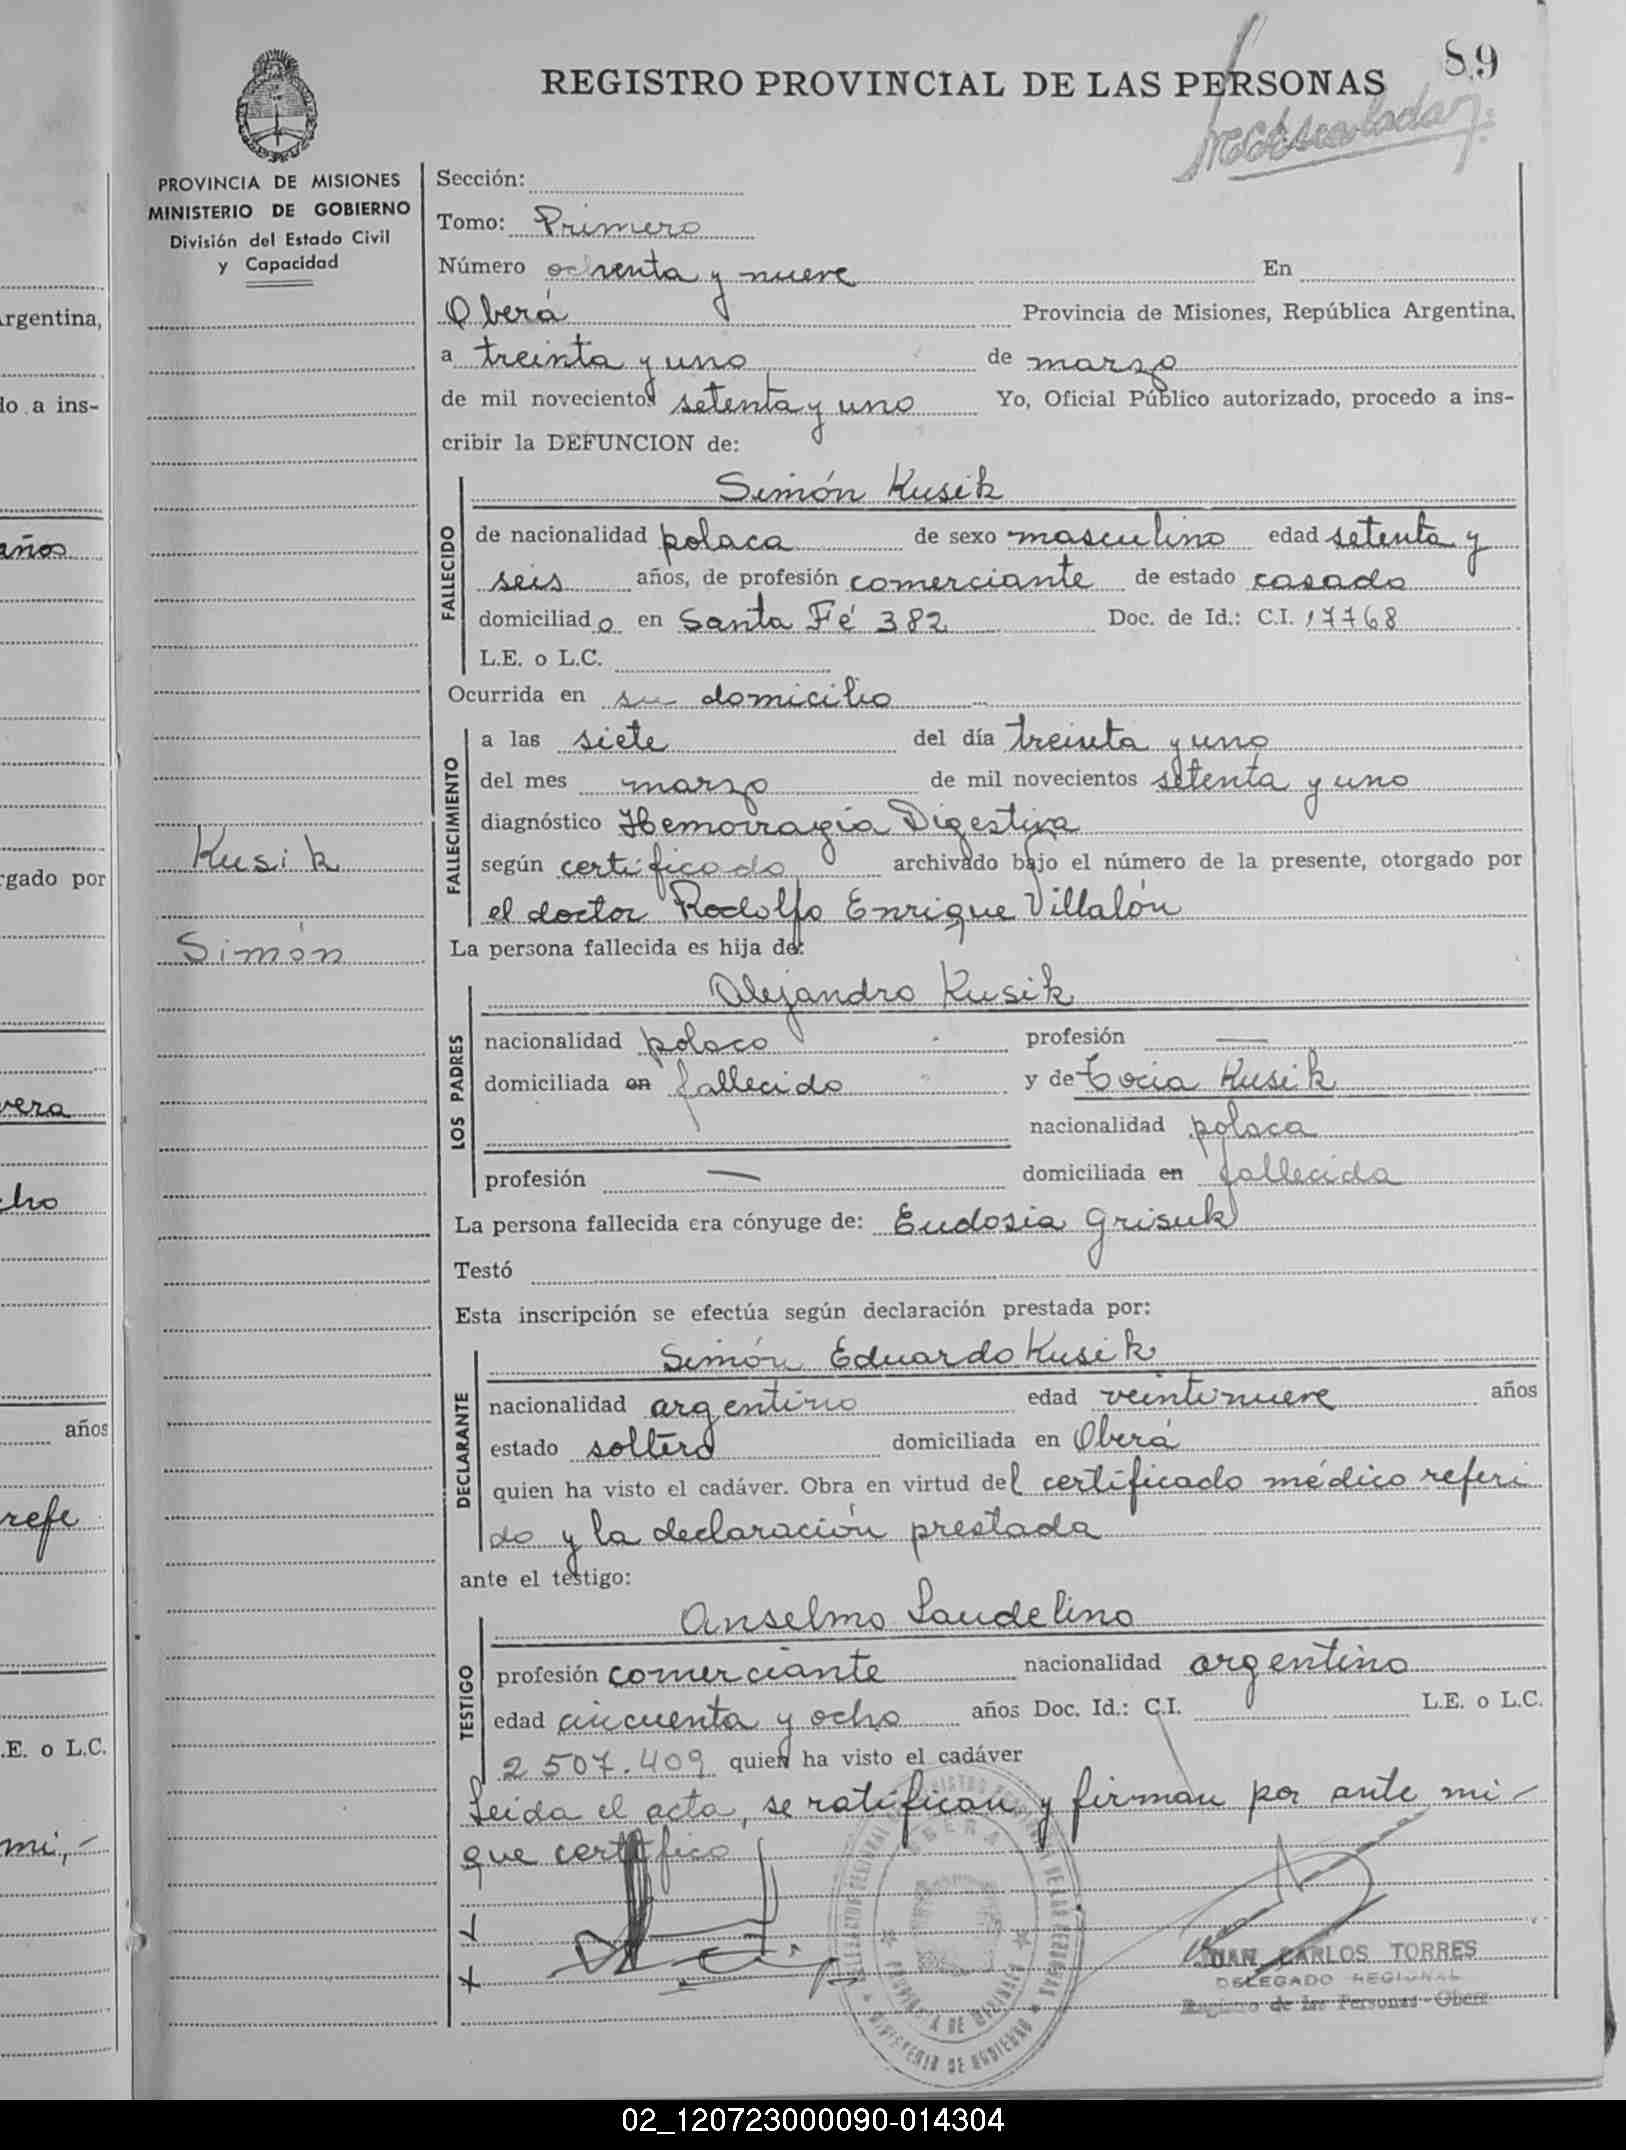 89
REGISTRO PROVINCIAL DE LAS PERSONAS
PROVINCIA DE MISIONES
MINISTERIO DE GOBIERNO
División del Estado Civil
y Capacidad
Kusik
Simón
Sección:
Tomo: Primero
Número ochenta y nueve En
Oberá Provincia de Misiones, República Argentina,
a treinta y uno de marzo
de mil novecientos setenta y uno Yo, Oficial Público autorizado, procedo a ins-
cribir la DEFUNCION de:
FALLECIDO
Simón Kusik
de nacionalidad polaca de sexo masculino edad setenta y
seis años, de profesión comerciante de estado casado
domiciliado en Santa Fé 382 Doc. de Id.: C.I. 17768
L.E. o L.C.
Ocurrida en su domicilio
FALLECIMIENTO
a las siete del día treinta y uno
del mes marzo de mil novecientos setenta y uno
diagnóstico Hemorragia Digestiva
según certificado archivado bajo el número de la presente, otorgado por
el doctor Rodolfo Enrique Villalón
La persona fallecida es hija de:
LOS PADRES
Alejandro Kusik
nacionalidad polaco profesión —
domiciliada en fallecido y de Kusik
nacionalidad polaca
profesión — domiciliada en fallecida
La persona fallecida era cónyuge de: Eudosia Grisuk
Testó
Esta inscripción se efectúa según declaración prestada por:
DECLARANTE
Simón Eduardo Kusik
nacionalidad argentino edad veintinueve años
estado soltero domiciliada en Oberá
quien ha visto el cadáver. Obra en virtud del certificado médico referi
do y la declaración prestada
ante el testigo:
TESTIGO
Anselmo Laudelino
profesión comerciante nacionalidad argentino
edad cincuenta y ocho años Doc. Id.: C.I. L.E. o L.C.
2507.409 quien ha visto el cadáver
Leída el acta, se ratifican y firman por ante mi -
que certifico
JUAN CARLOS TORRES
DELEGADO REGIONAL
Registro de las Personas - Oberá
OBERA
PROVINCIA DE MISIONES
MINISTERIO DE GOBIERNO
rgentina,
do a ins-
años
rgado por
vera
cho
años
refe
.E. o L.C.
mi,-
02_120723000090-014304